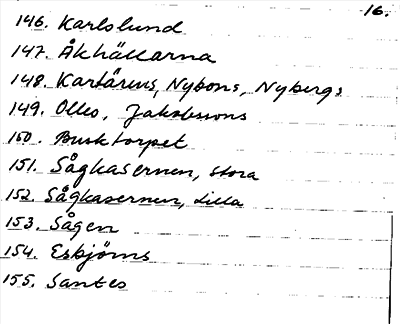 16.
146. Karlslund
147. Åkhällarna
148. Kartärens, Nybons, Nybergs
149. Olles, Jakobssons
150. Busktorpet
151. Sågkasernen, Stora
152. Sågkasernen, Lilla
153. Sågen
154. Esbjörns
155. Santes